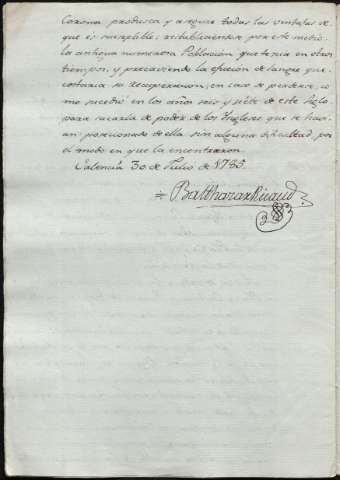 Corona produsca y asegure todas las ventajas de
que es suceptible, restableciendose por este medio
la antigua numerosa Poblacion que tenia en otros
tiempos, y precaviendo la efucion de sangre que
costaria su recuperacion, en caso de perderse, co
mo sucedió en los años seis y siete de este siglo
para sacarla de poder de los Ingleses que se havi
an posesionado de ella sin alguna dificultad, por
el modo en que la encontraron.
Valencia 30 de Julio de 1785.
Balthazar Ricaud